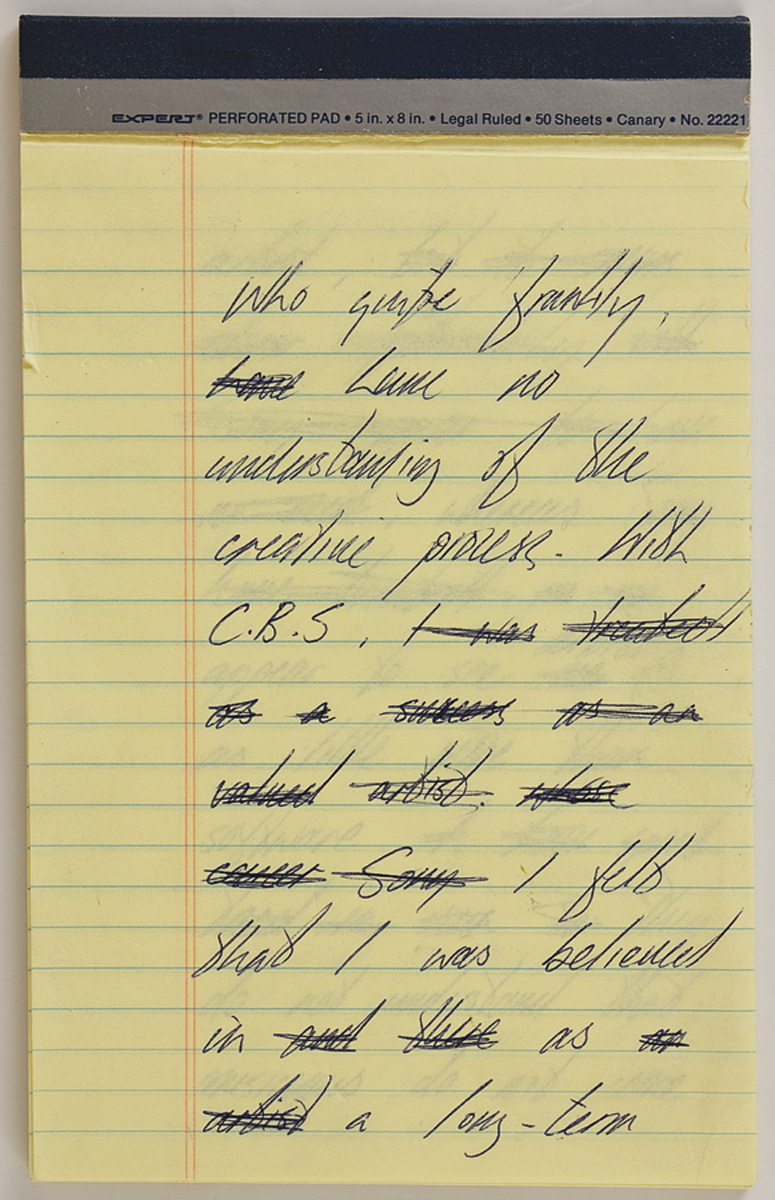 EXPERT® PERFORATED PAD • 5 in. x 8 in. • Legal Ruled • 50 Sheets • Canary • No. 22221
Who quite frankly,
have have no
understanding of the
creative process. With
C.B.S, I was treated
as a success as an
valued artist. whose
career Sony I felt
that I was believed
in and there as an
artist a long-term